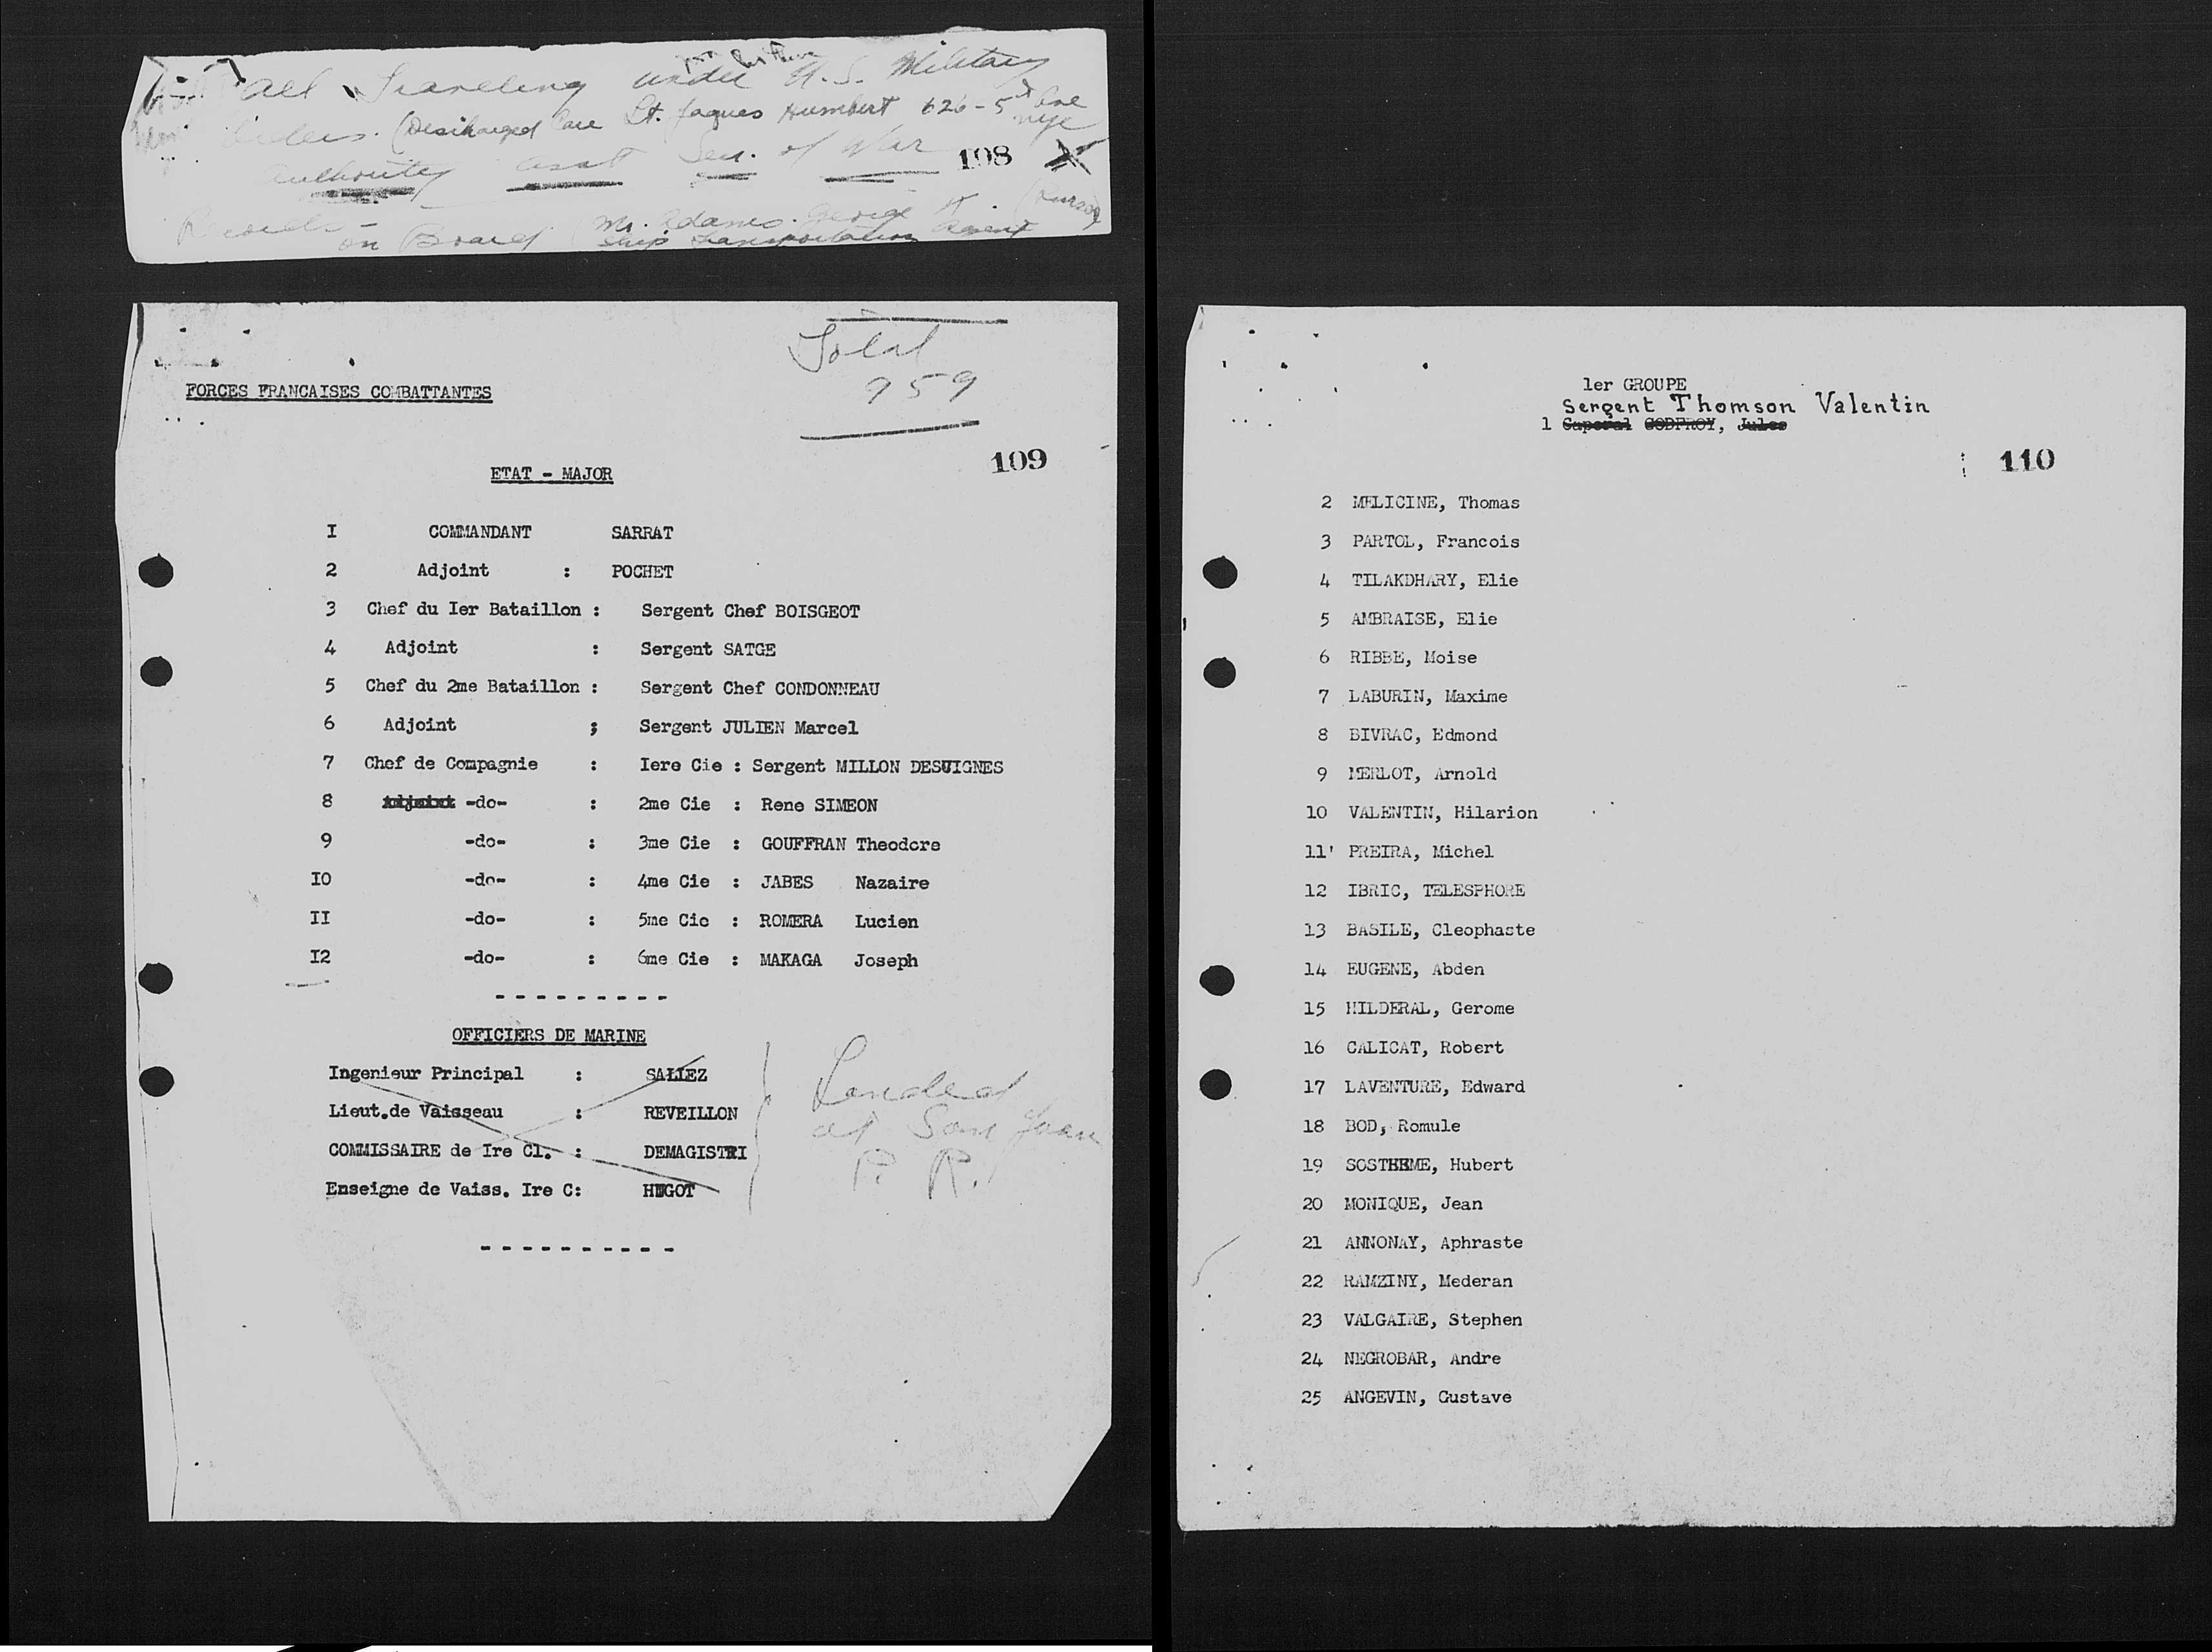 all Traveling under U.S. Military
Orders. (Discharged Care Lt. Jaques Humbert 626-5th Ave
nyc
Authority Asst Sec. of War 198
on Board (Mr. Adams. George A. (Purser)
Ship Transportation Agent
Total
959
FORCES FRANCAISES COMBATTANTES
109
ETAT - MAJOR
I COMMANDANT SARRAT
2 Adjoint : POCHET
3 Chef du Ier Bataillon : Sergent Chef BOISGEOT
4 Adjoint : Sergent SATGE
5 Chef du 2me Bataillon : Sergent Chef CONDONNEAU
6 Adjoint ; Sergent JULIEN Marcel
7 Chef de Compagnie : Iere Cie : Sergent MILLON DESVIGNES
8 Adjoint -do- : 2me Cie : Rene SIMEON
9 -do- : 3me Cie : GOUFFRAN Theodore
I0 -do- : 4me Cie : JABES Nazaire
II -do- : 5me Cie : ROMERA Lucien
I2 -do- : 6me Cie : MAKAGA Joseph
- - - - - - - - -
OFFICIERS DE MARINE
Ingenieur Principal : SALIEZ
Lieut.de Vaisseau : REVEILLON
COMMISSAIRE de Ire Cl. : DEMAGISTRI
Enseigne de Vaiss. Ire C: HUGOT
Landed
at San Juan
P. R.
- - - - - - - - - -
1er GROUPE
Sergent Thomson Valentin
1 Caporal GODFROY, Jules
110
2 MELICINE, Thomas
3 PARTOL, Francois
4 TILAKDHARY, Elie
5 AMBRAISE, Elie
6 RIBBE, Moise
7 LABURIN, Maxime
8 BIVRAC, Edmond
9 MERLOT, Arnold
10 VALENTIN, Hilarion
11' PREIRA, Michel
12 IBRIC, TELESPHORE
13 BASILE, Cleophaste
14 EUGENE, Abden
15 HILDERAL, Gerome
16 CALICAT, Robert
17 LAVENTURE, Edward
18 BOD, Romule
19 SOSTHEME, Hubert
20 MONIQUE, Jean
21 ANNONAY, Aphraste
22 RAMZINY, Mederan
23 VALGAIRE, Stephen
24 NEGROBAR, Andre
25 ANGEVIN, Gustave